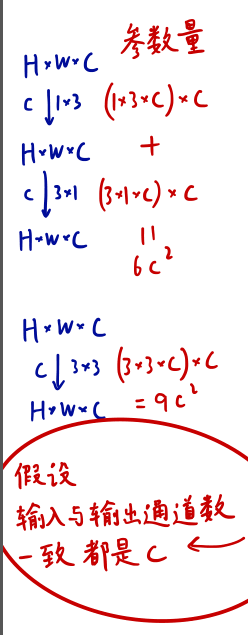 参数量
H×W×C
C ↓ 1×3 (1×3×C)×C
H×W×C +
C ↓ 3×1 (3×1×C)×C
H×W×C 11
6C²
H×W×C
C ↓ 3×3 (3×3×C)×C
H×W×C = 9C²
假设
输入与输出通道数
一致 都是 C ←